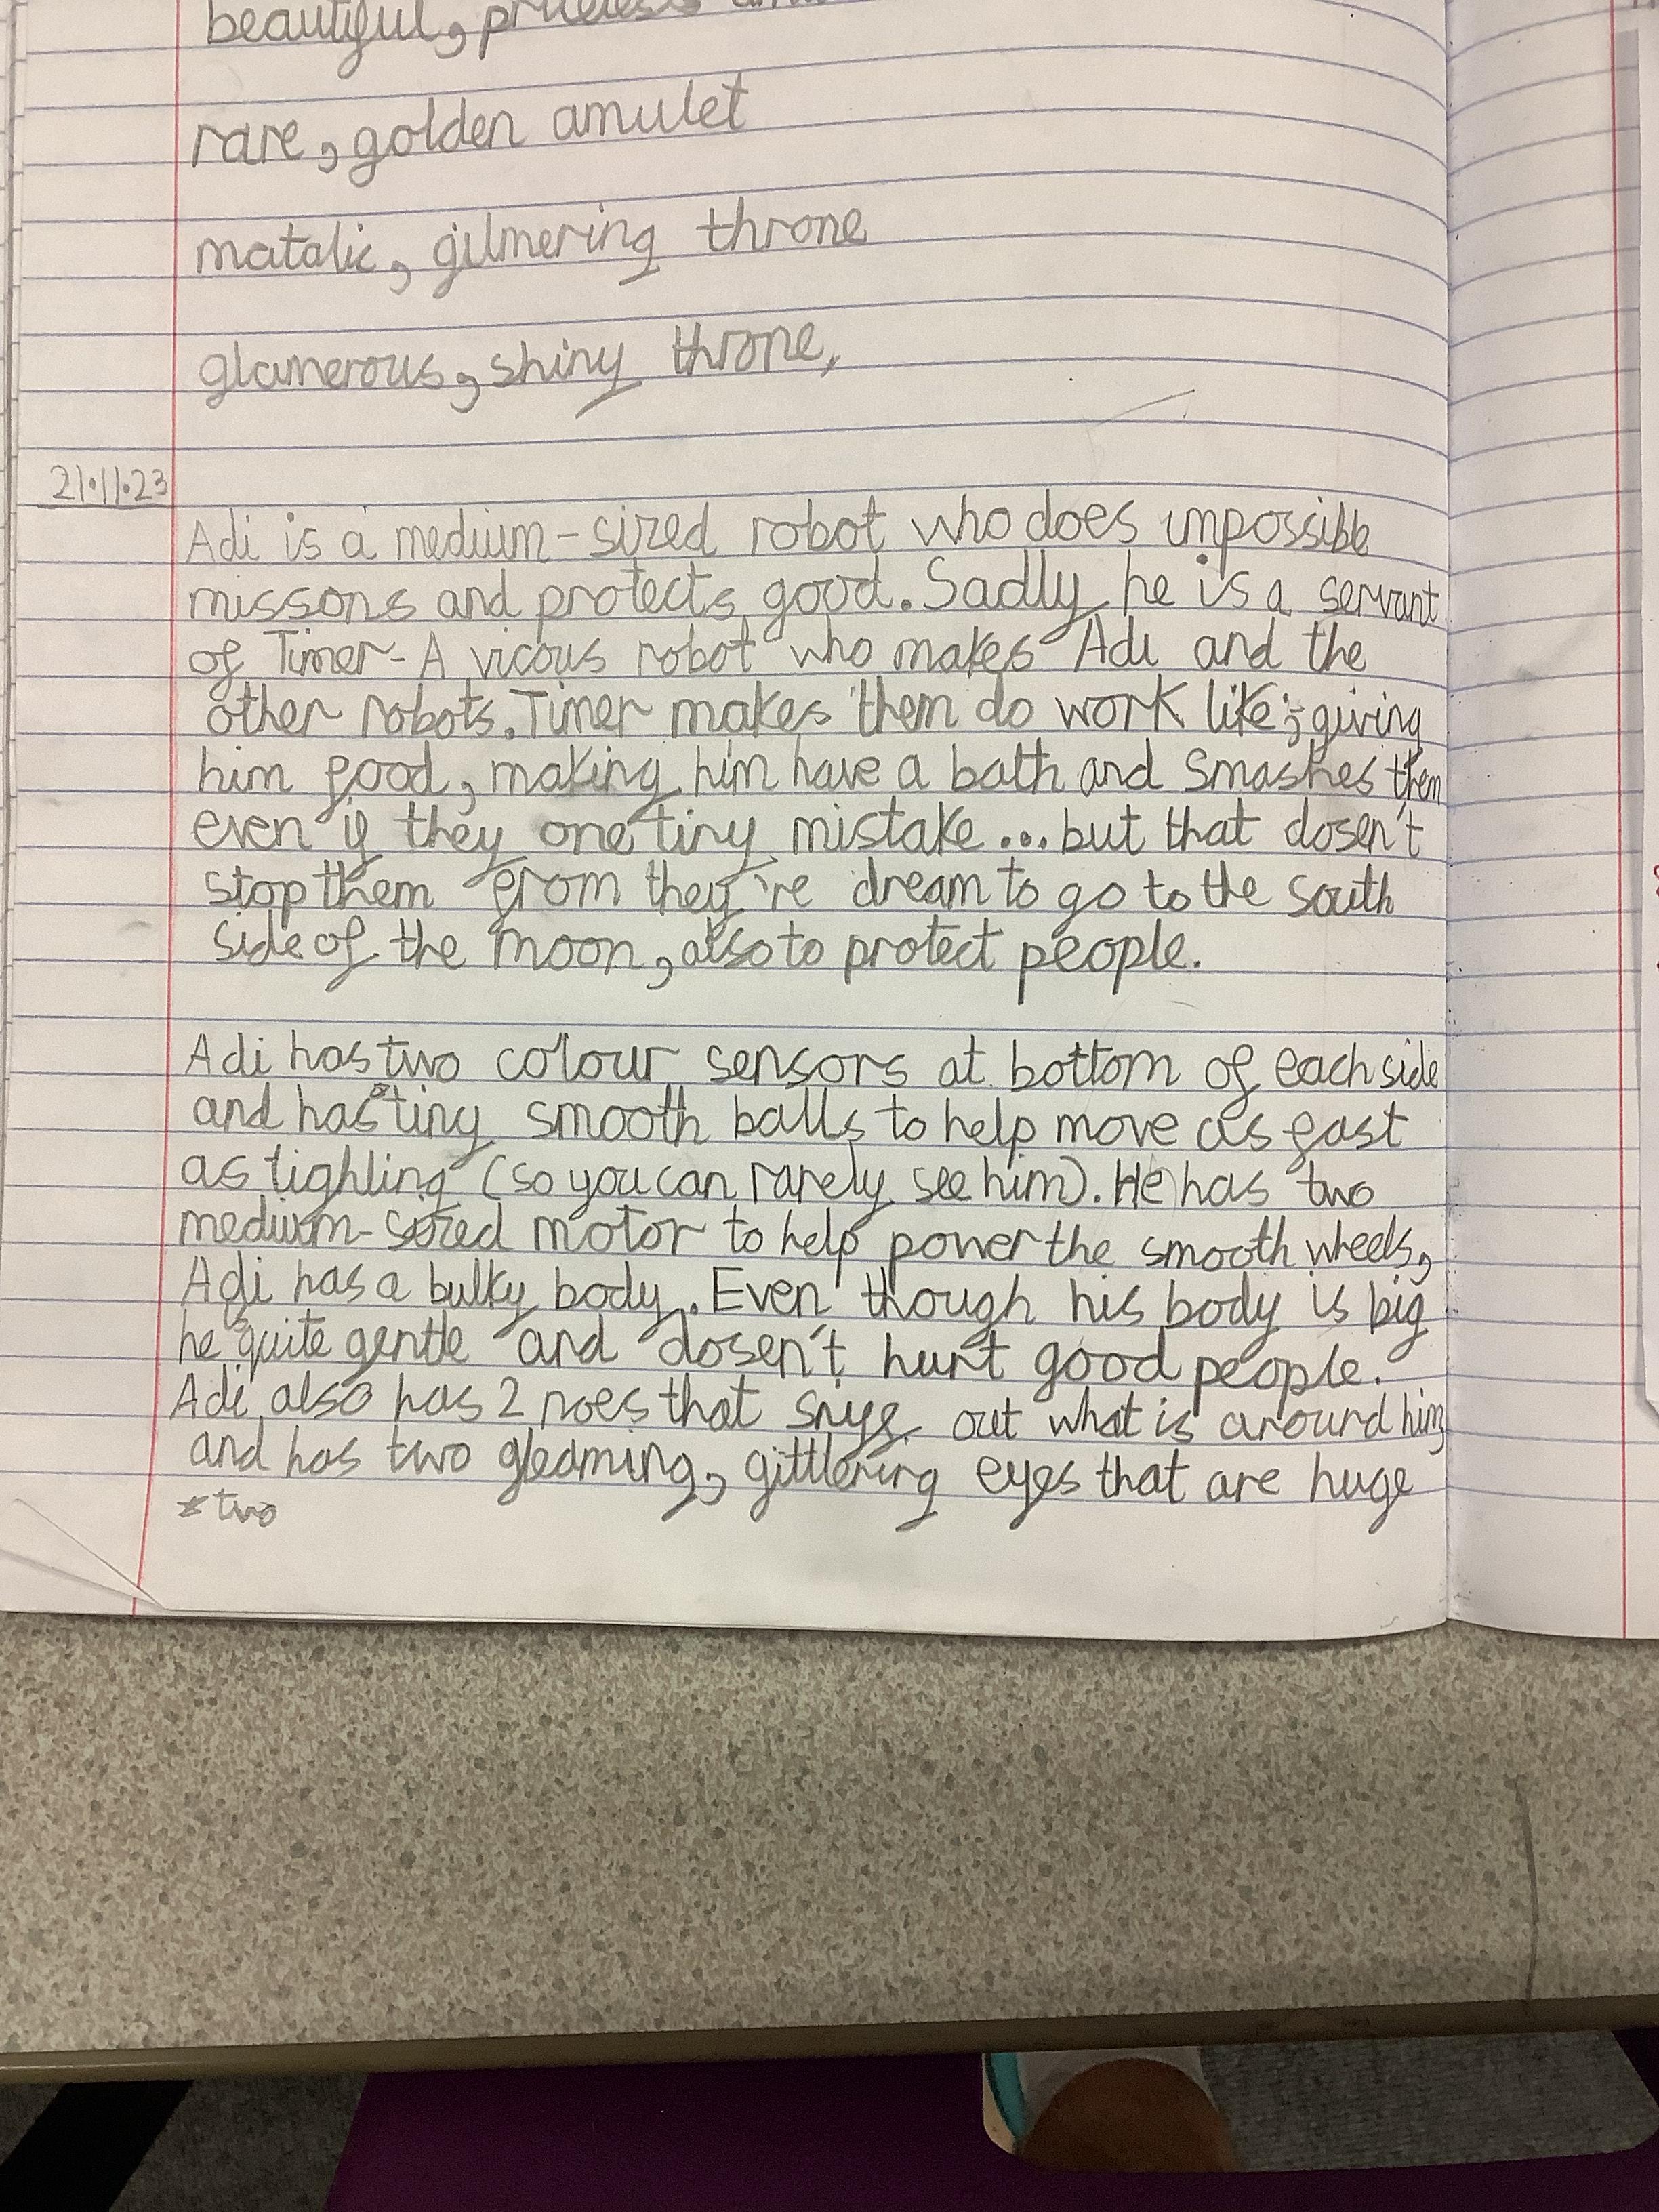 beautiful, priceless
rare, golden amulet
matalic, gilmering throne
glamerous, shiny throne,
21.11.23
Adi is a medium-sized robot who does impossible
missons and protects good. Sadly he is a servant
of Timer- A vicous robot who makes Adi and the
other robots. Timer makes them do work like; giving
him food, making him have a bath and smashes them
even if they one tiny mistake...but that dosen't
stop them from they're dream to go to the south
side of the moon, also to protect people.
Adi has two colour sensors at bottom of each side
and has *tiny smooth balls to help move as fast
as lighling (so you can rarely see him). He has two
medium-sized motor to help power the smooth wheels,
Adi has a bulky body. Even though his body is big
he is quite gentle and dosen't hurt good people.
Adi also has 2 noes that out what is around him
and has two gleaming, gittlering eyes that are huge
*two